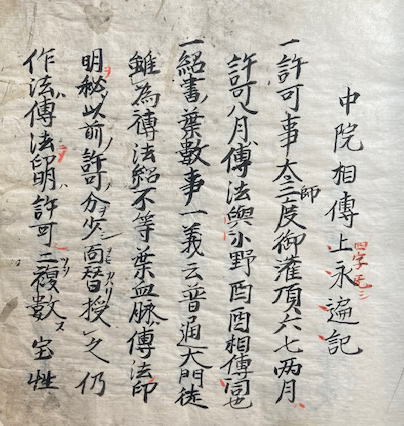 中院相傳上永遍記
一許可事 御灌頂六七两月
許可八月傳法與小野酉酉相傳同也
一紹書葉數事一義云普通大門徒
雖為傳法紹不等葉血脉傳法印
明秘以前許可分少面替授之仍
作法傳法印明許可二複數宝性